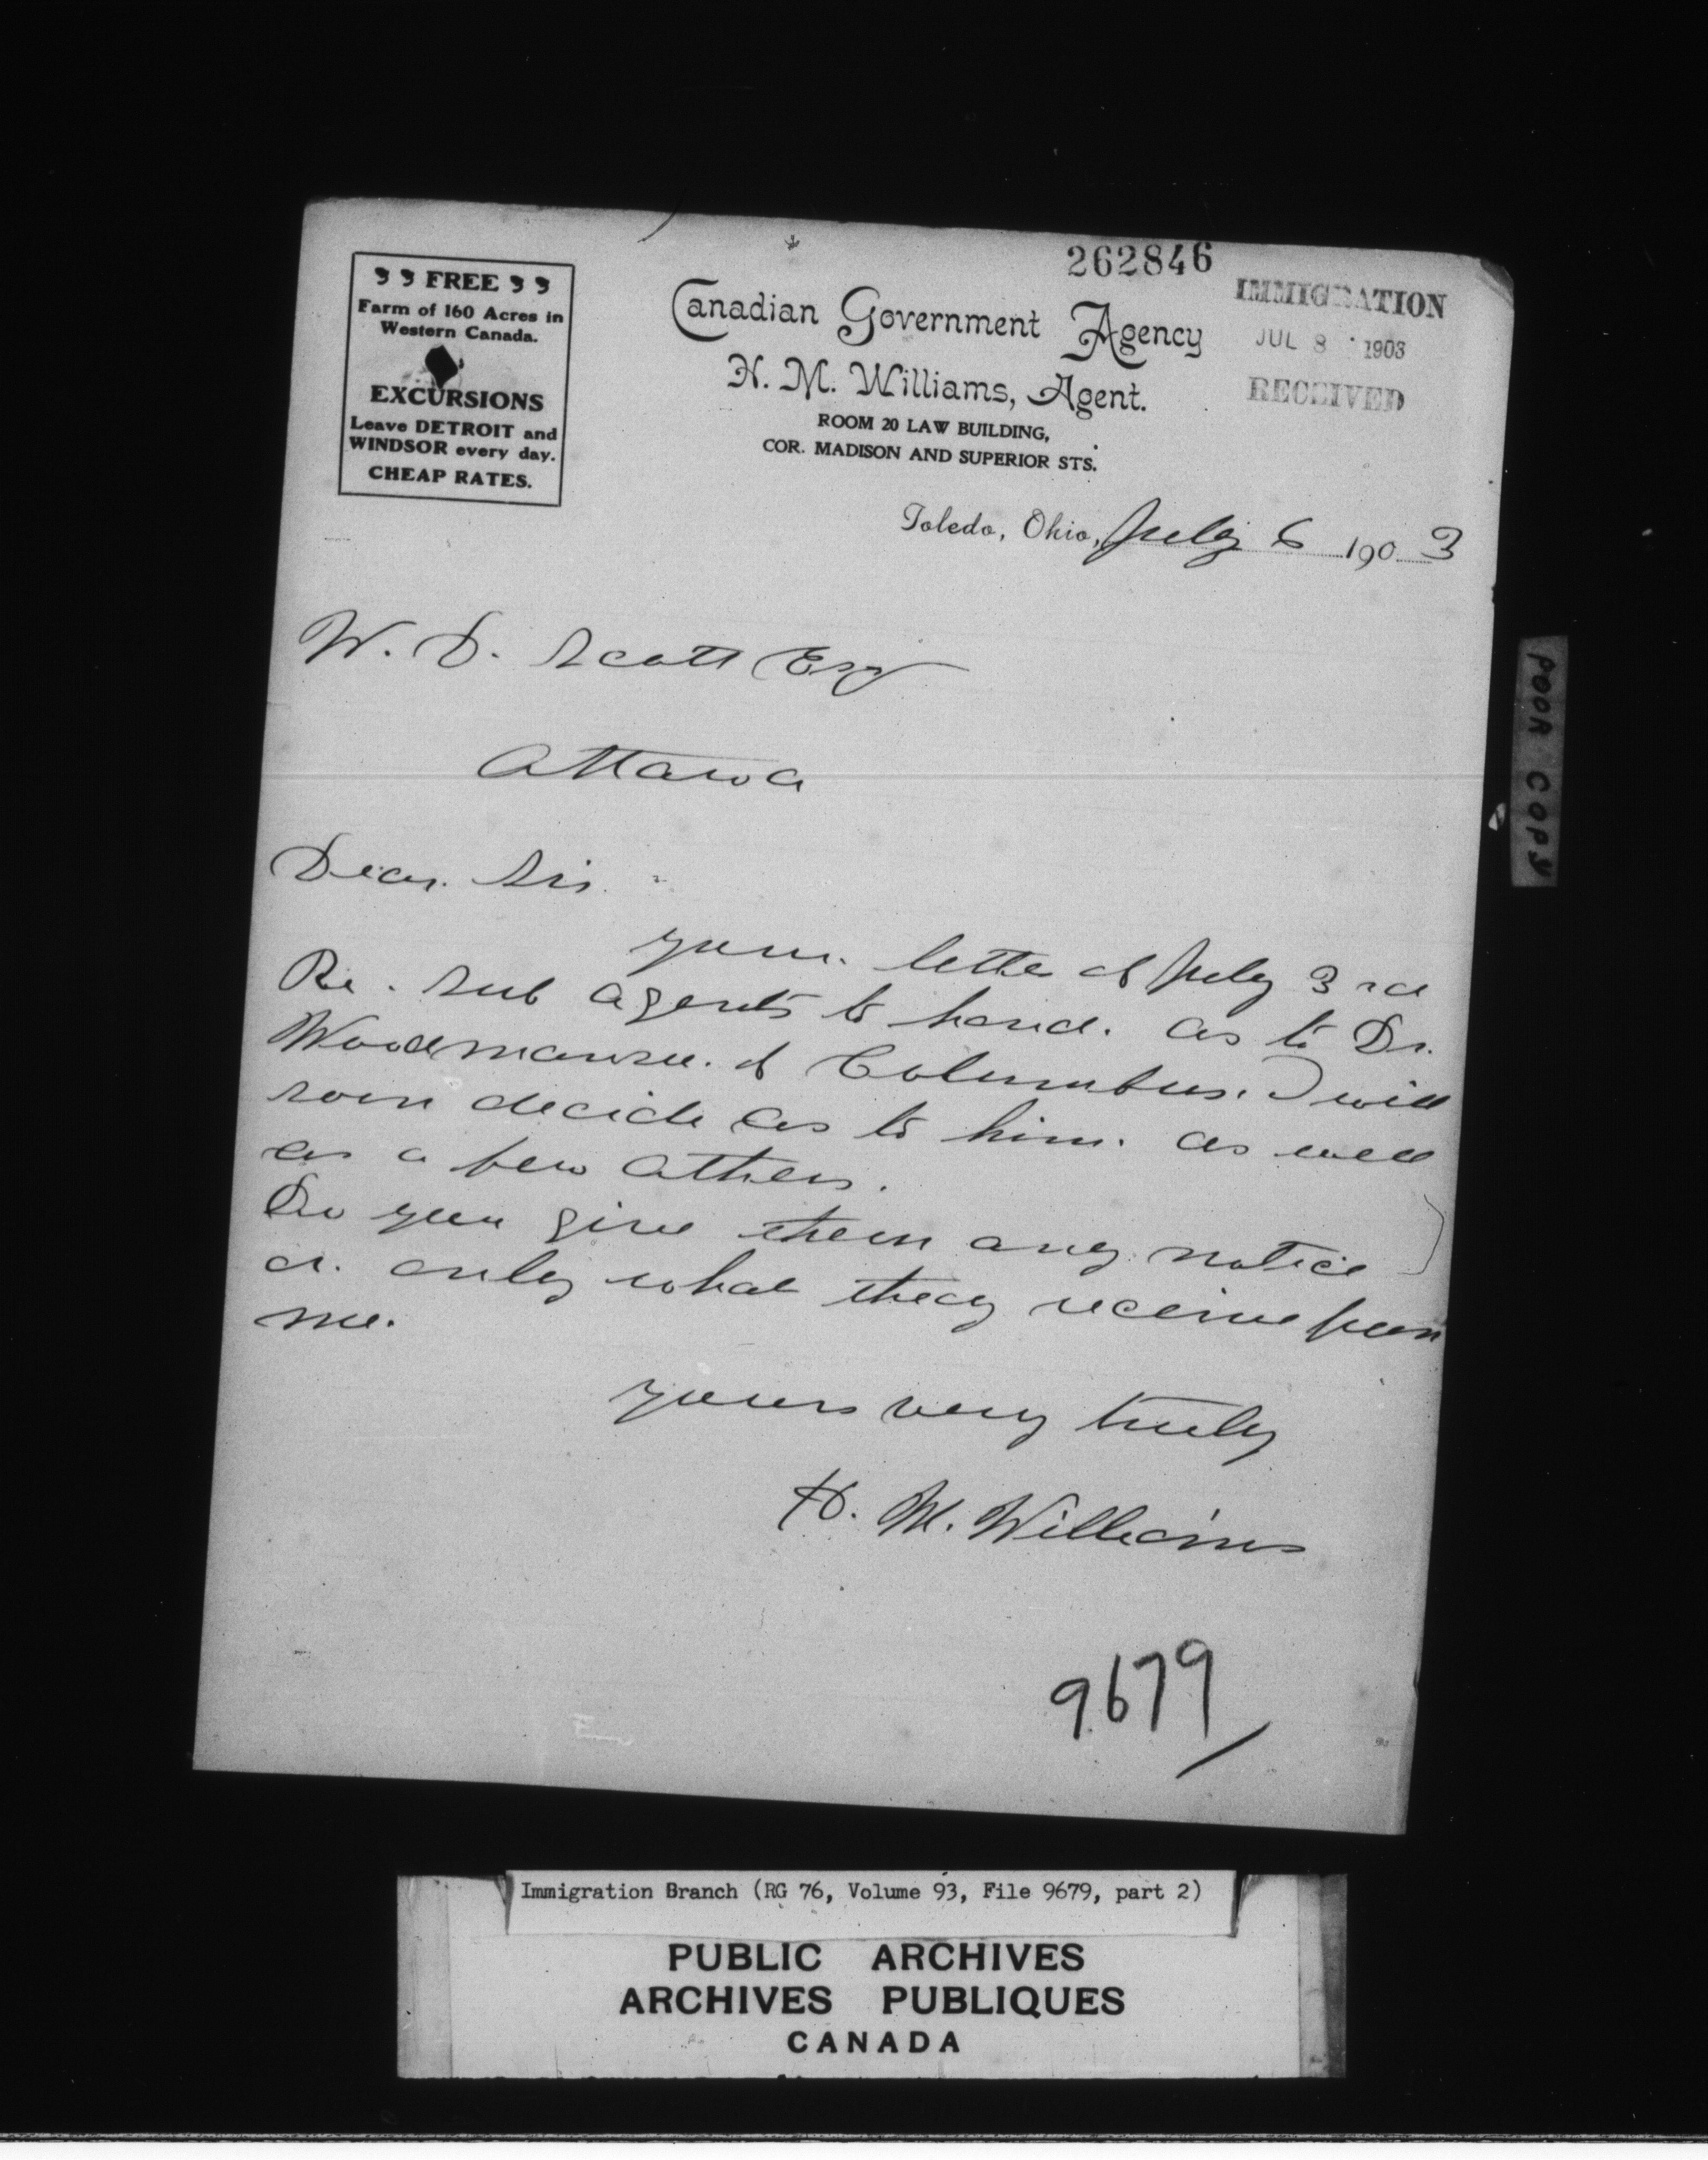 262846
IMMIGRATION
JUL 8 1903
RECEIVED
FREE
Farm of 160 Acres in
Western Canada.
EXCURSIONS
Leave DETROIT and
WINDSOR every day.
CHEAP RATES.
Canadian Government Agency
H. M. Williams, Agent.
ROOM 20 LAW BUILDING,
COR. MADISON AND SUPERIOR STS.
Toledo, Ohio, July 6 1903
W. D. Scott Esq
Ottawa
Dear Sir
your letter of July 3rd
Re. sub agents to hand. as to Dr.
Woodmansee. of Columbus. I will
soon decide as to him. as well
as a few others.
Do you give them any notice
or. only what they receive from
me.
yours very truly
H. M. Williams
9679
POOR COPY
Immigration Branch (RG 76, Volume 93, File 9679, part 2)
PUBLIC ARCHIVES
ARCHIVES PUBLIQUES
CANADA